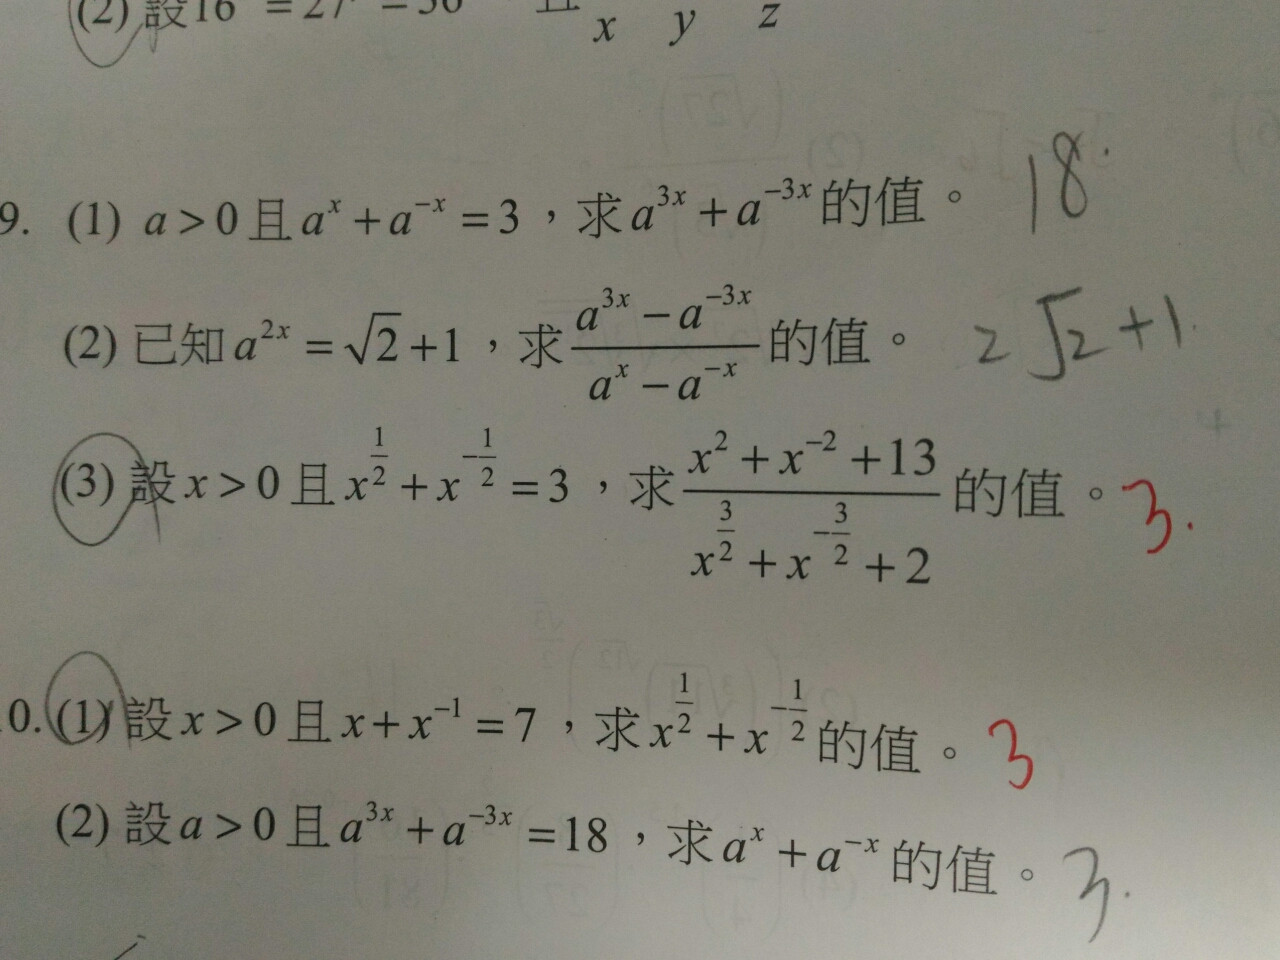 (2) 設16 = 27 = 36 且 x y z
9. (1) a > 0 且 a^x + a^{-x} = 3，求 a^{3x} + a^{-3x} 的值。 18.
(2) 已知 a^{2x} = √2 + 1，求 \frac{a^{3x} - a^{-3x}}{a^x - a^{-x}} 的值。 2√2+1.
(3) 設 x > 0 且 x^{\frac{1}{2}} + x^{-\frac{1}{2}} = 3，求 \frac{x^2 + x^{-2} + 13}{x^{\frac{3}{2}} + x^{-\frac{3}{2}} + 2} 的值。 3.
0. (1) 設 x > 0 且 x + x^{-1} = 7，求 x^{\frac{1}{2}} + x^{-\frac{1}{2}} 的值。 3
(2) 設 a > 0 且 a^{3x} + a^{-3x} = 18，求 a^x + a^{-x} 的值。 3.